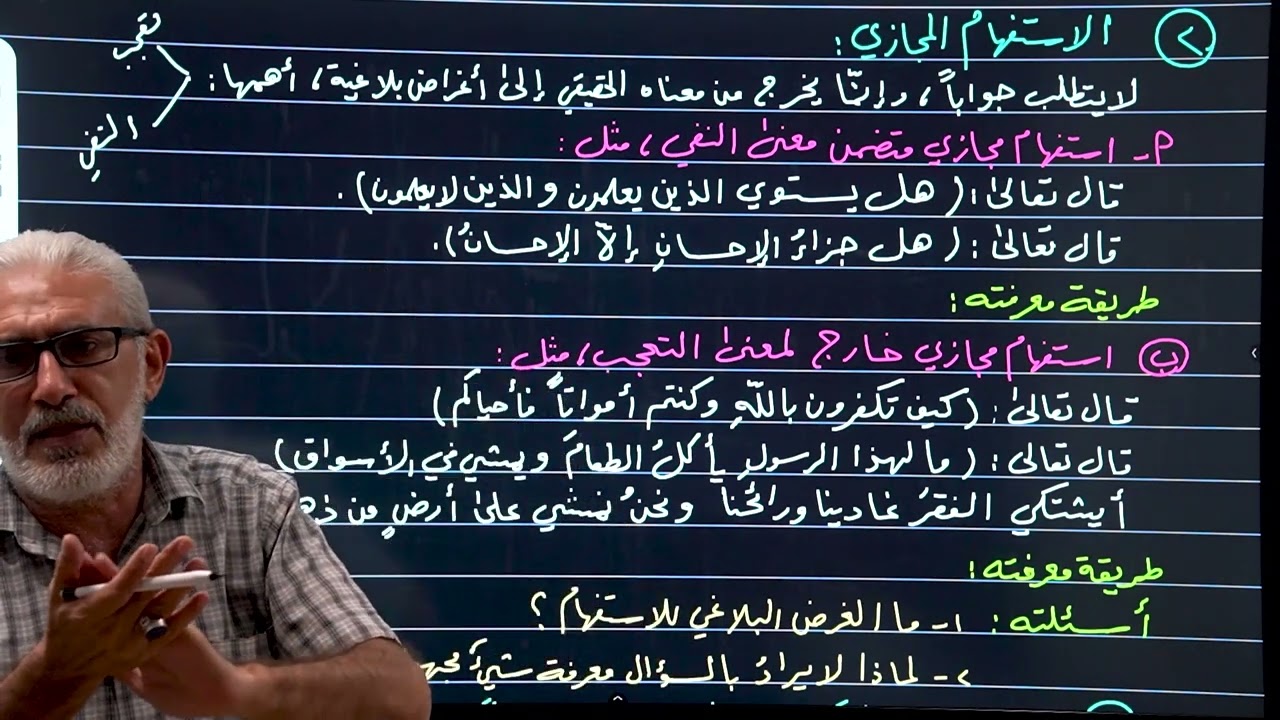 ٢ الاستفهام المجازي :
لا يتطلب جواباً ، وإنّما يخرج من معناه الحقيقي إلى أغراض بلاغية ، أهمها :
تعجب
النفي
P- استفهام مجازي متضمن معنى النفي ، مثل :
قال تعالى : ( هل يستوي الذين يعلمون والذين لا يعلمون ) .
قال تعالى : ( هل جزاءُ الإحسانِ إلاّ الإحسانُ ) .
طريقة معرفته :
ب استفهام مجازي خارج لمعنى التعجب ، مثل :
قال تعالى : ( كيف تكفرون باللّهِ وكنتم أمواتاً فأحياكم )
قال تعالى : ( ما لهذا الرسولِ يأكلُ الطعامَ ويمشي في الأسواق )
أيشتكي الفقرَ غادينا ورائحُنا ونحنُ نمشي على أرضٍ من
طريقة معرفته :
أسئلته : ١- ما الغرض البلاغي للاستفهام ؟
٢- لماذا لا يرادُ بالسؤال معرفة شيءٍ